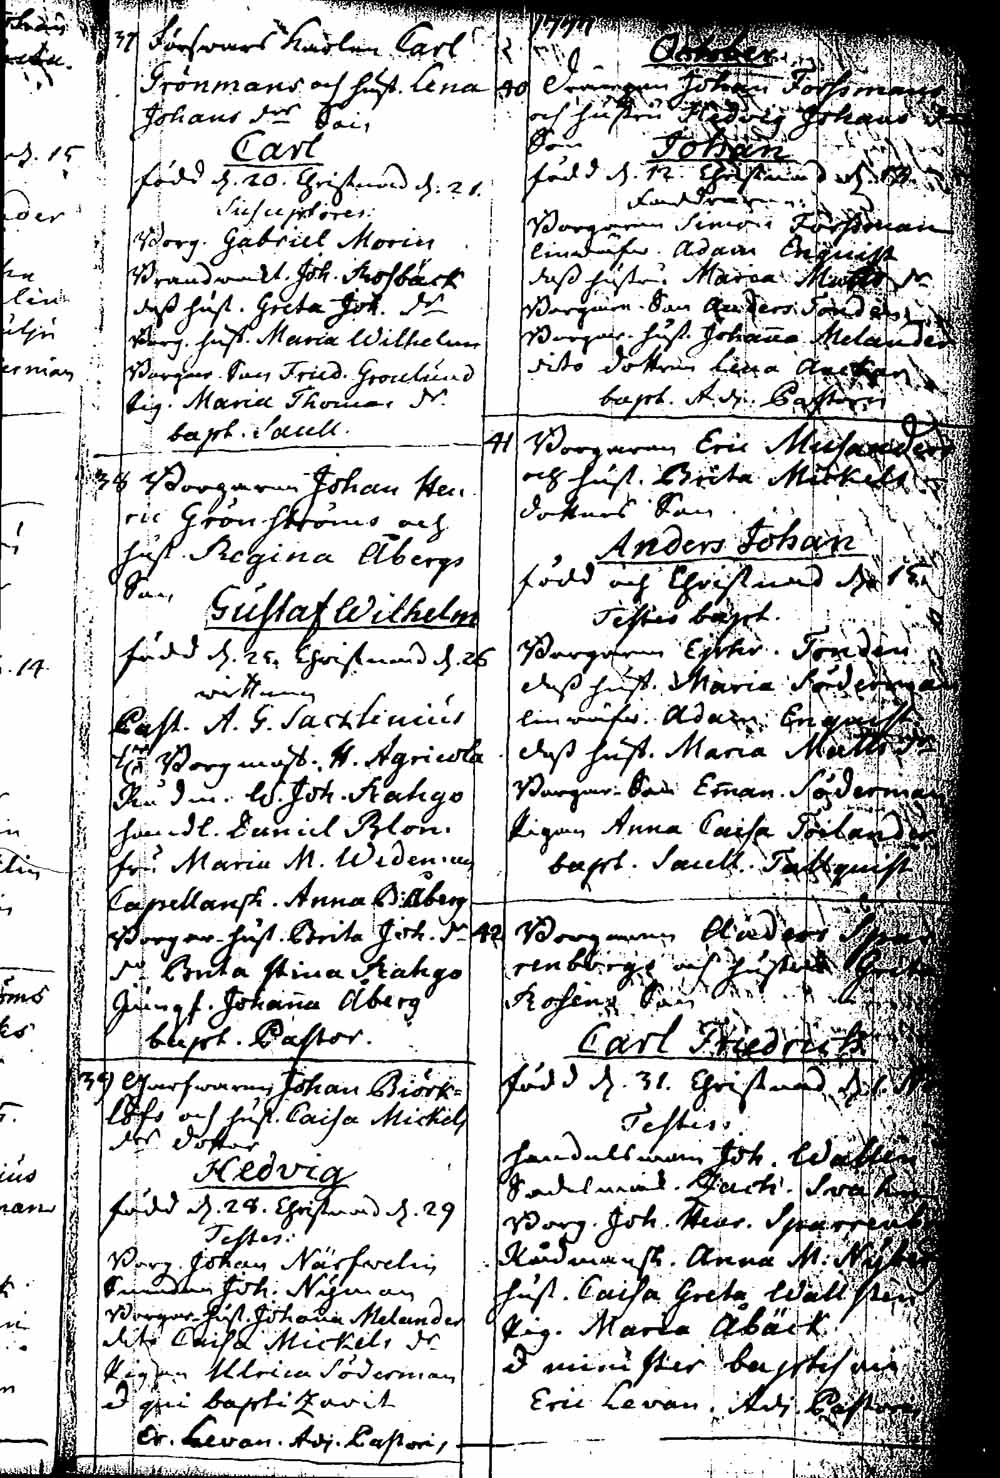 37 Försvars Karlen Carl
Grönmans och hust. Lena
Johans dr Son
Carl
född d. 20. Christnad d. 21.
Susceptores.
Borg. Gabriel Morin
Brandvakt. Joh. Rosbäck
dess hust. Greta Joh. dr
Borg. hust. Maria Wilhelm
Borgar. Son Fried. Gronlund
Pig. Maria Thomas dr.
bapt. Sacell.
38 Borgaren Johan Hen
ric Grönströms och
hust. Regina Åbergs
Son
Gustaf Wilhelm
född d. 25. Christnad d. 26
wittnen
Past. A. G. Sacklinius
Borgmäst. H. Agricola
Rådm. W. Joh. Kahgo
handl. Daniel Blom.
fru Maria M. Wideman
Capellansk. Anna B. Åberg
Borgar. hust. Brita Joh. dr
dr Brita Stina Kahgo
Jungf. Johanna Åberg
bapt. Pastor.
39 Johan Biörk-
löfs och hust. Caisa Mickels
drs dotter
Hedvig
född d. 28. Christnad d. 29
Testes:
Borg. Johan Närfwelin
Joh. Nyman
Borgar. hust. Johanna Melander
dito Caisa Mickels dr
Pigan Ulrica Söderman
qui baptizavit
Er. Levan. Adj. Pastoris
October
40 Johan Forssmans
och hustru Hedvig Johans dr
Son Johan
född d. 12. Christnad d.
Faddrarne.
Borgaren Simon Forssman
Adam Enquist
dess hustru Maria Matts dr
Borgare. Son Anders Tonden
Borgar. hust. Johanna Melander
dito dottren Lena
bapt. Adj. Pastoris
41 Borgaren Eric Musanders
och hust. Brita Mickels
dotters Son
Anders Johan
född och Christnad d. 15.
Testes bapt.
Borgaren Ephr. Tonden
dess hust. Maria Söderman
Adam Enquist
dess hust. Maria Matts dr
Borgar. Son Eman. Söderman
Pigan Anna Caisa Törlander
bapt. Sacell. Tallquist
42 Borgaren Anders Spar
renborgs och hustru Greta
Rosens Son
Carl Friedrick
född d. 31. Christnad d. 1.
Testes:
handelsman Joh. Wallen
Sadelmak. Jach. Svahn
Borg. Joh. Henr. Sparrenb
Rådmansk. Anna M. Nyberg
hust. Caisa Greta Wallsten
Pig. Maria Åbäck
minister baptismi
Eric Levan. Adj. Pastoris